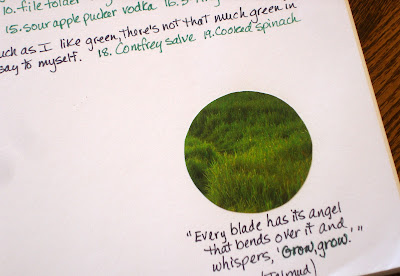 10. file folder
15. sour apple pucker vodka 16.
uch as I like green, there's not that much green in
say to myself. 18. Comfrey salve 19. Cooked spinach
"Every blade has its angel
that bends over it and
whispers, 'Grow, grow.'"
(Talmud)